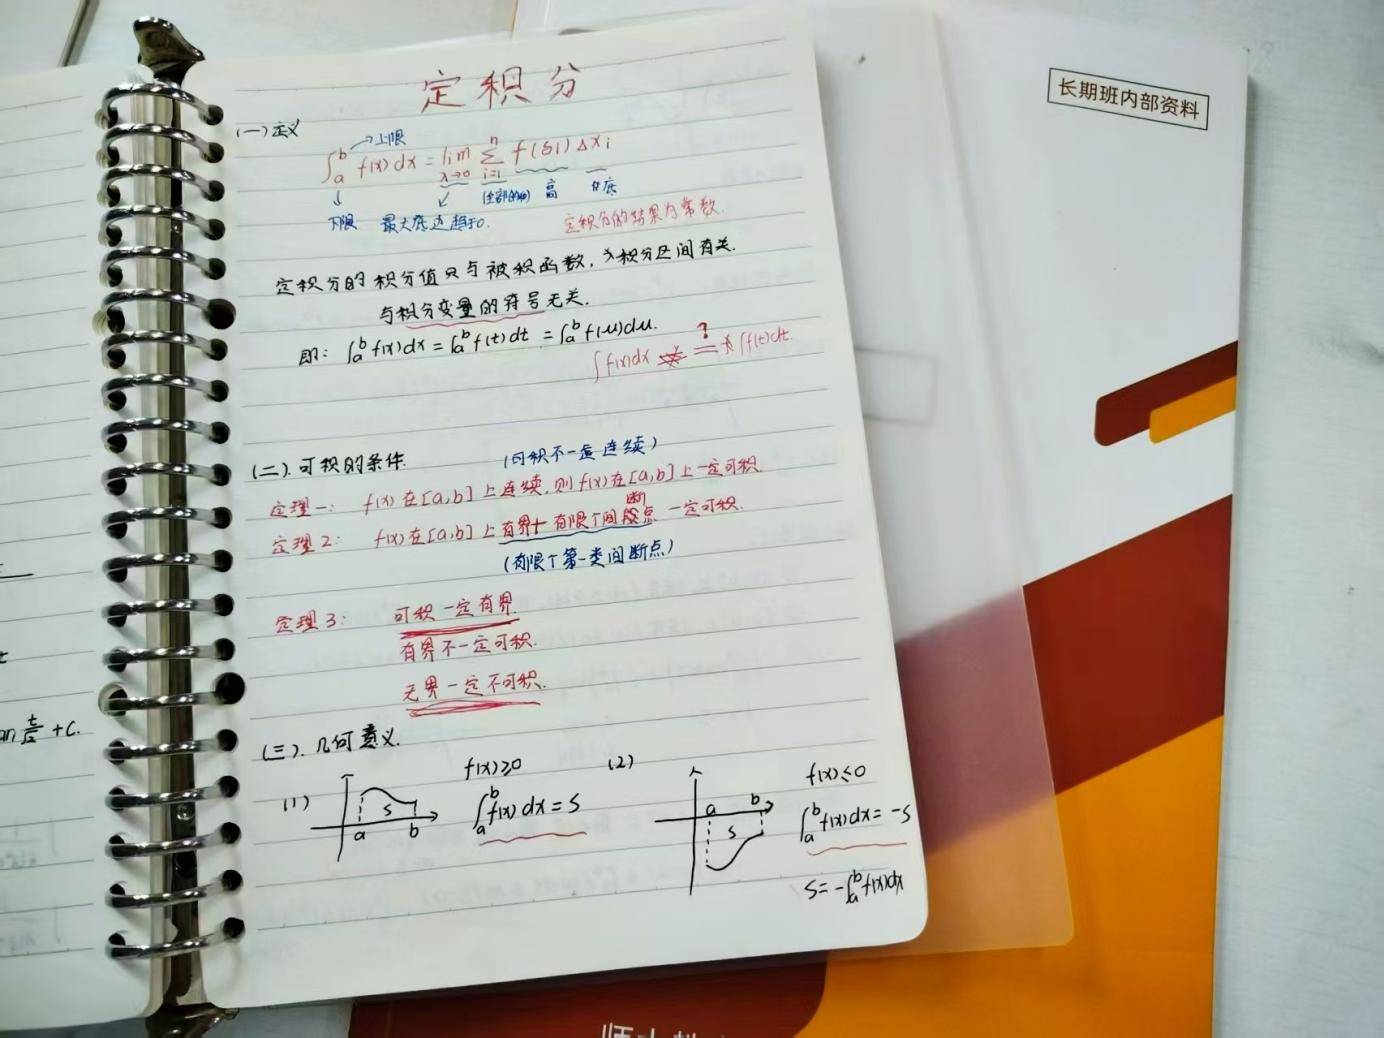 定积分
(一)定义
上限
∫_a^b f(x)dx = lim_{λ→0} Σ_{i=1}^n f(ξi)Δxi
下限 最大底边趋于0. 高 底
定积分的结果为常数.
定积分的积分值只与被积函数,积分区间有关.
与积分变量的符号无关.
即: ∫_a^b f(x)dx = ∫_a^b f(t)dt = ∫_a^b f(u)du.
?
∫f(x)dx = ∫f(t)dt.
(二).可积的条件. (可积不一定连续)
定理一: f(x)在[a,b]上连续,则f(x)在[a,b]上一定可积.
断
定理2: f(x)在[a,b]上有界+有限个间点一定可积.
(有限个第一类间断点)
定理3: 可积一定有界.
有界不一定可积.
无界一定不可积.
(三).几何意义.
(1) a S b f(x)≥0
∫_a^b f(x)dx = S
(2) a b S f(x)≤0
∫_a^b f(x)dx = -S
S = -∫_a^b f(x)dx
+C.
长期班内部资料